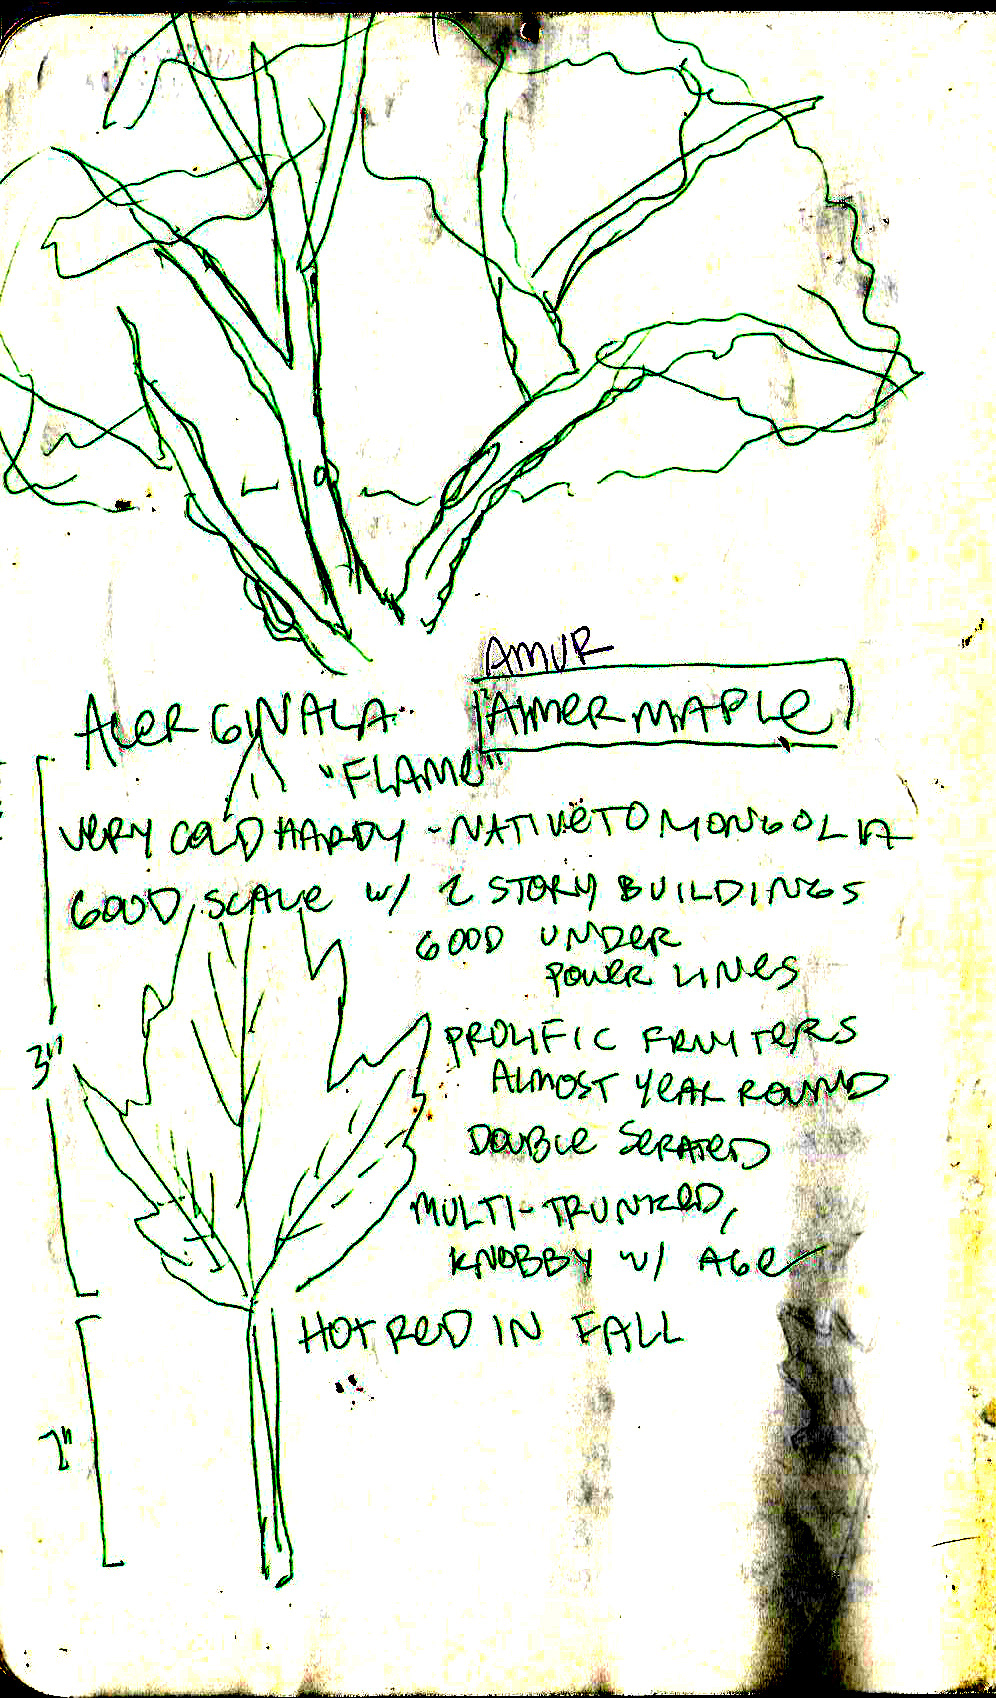 AMUR
ACER GINALA "AMER MAPLE
"FLAME"
VERY COLD HARDY - NATIVE TO MONGOLIA
GOOD SCALE w/ 2 STORY BUILDINGS
GOOD UNDER
POWER LINES
3"
PROLIFIC FRUITERS
ALMOST YEAR ROUND
DOUBLE SERATED
MULTI-TRUNKED,
KNOBBY w/ AGE
HOT RED IN FALL
2"